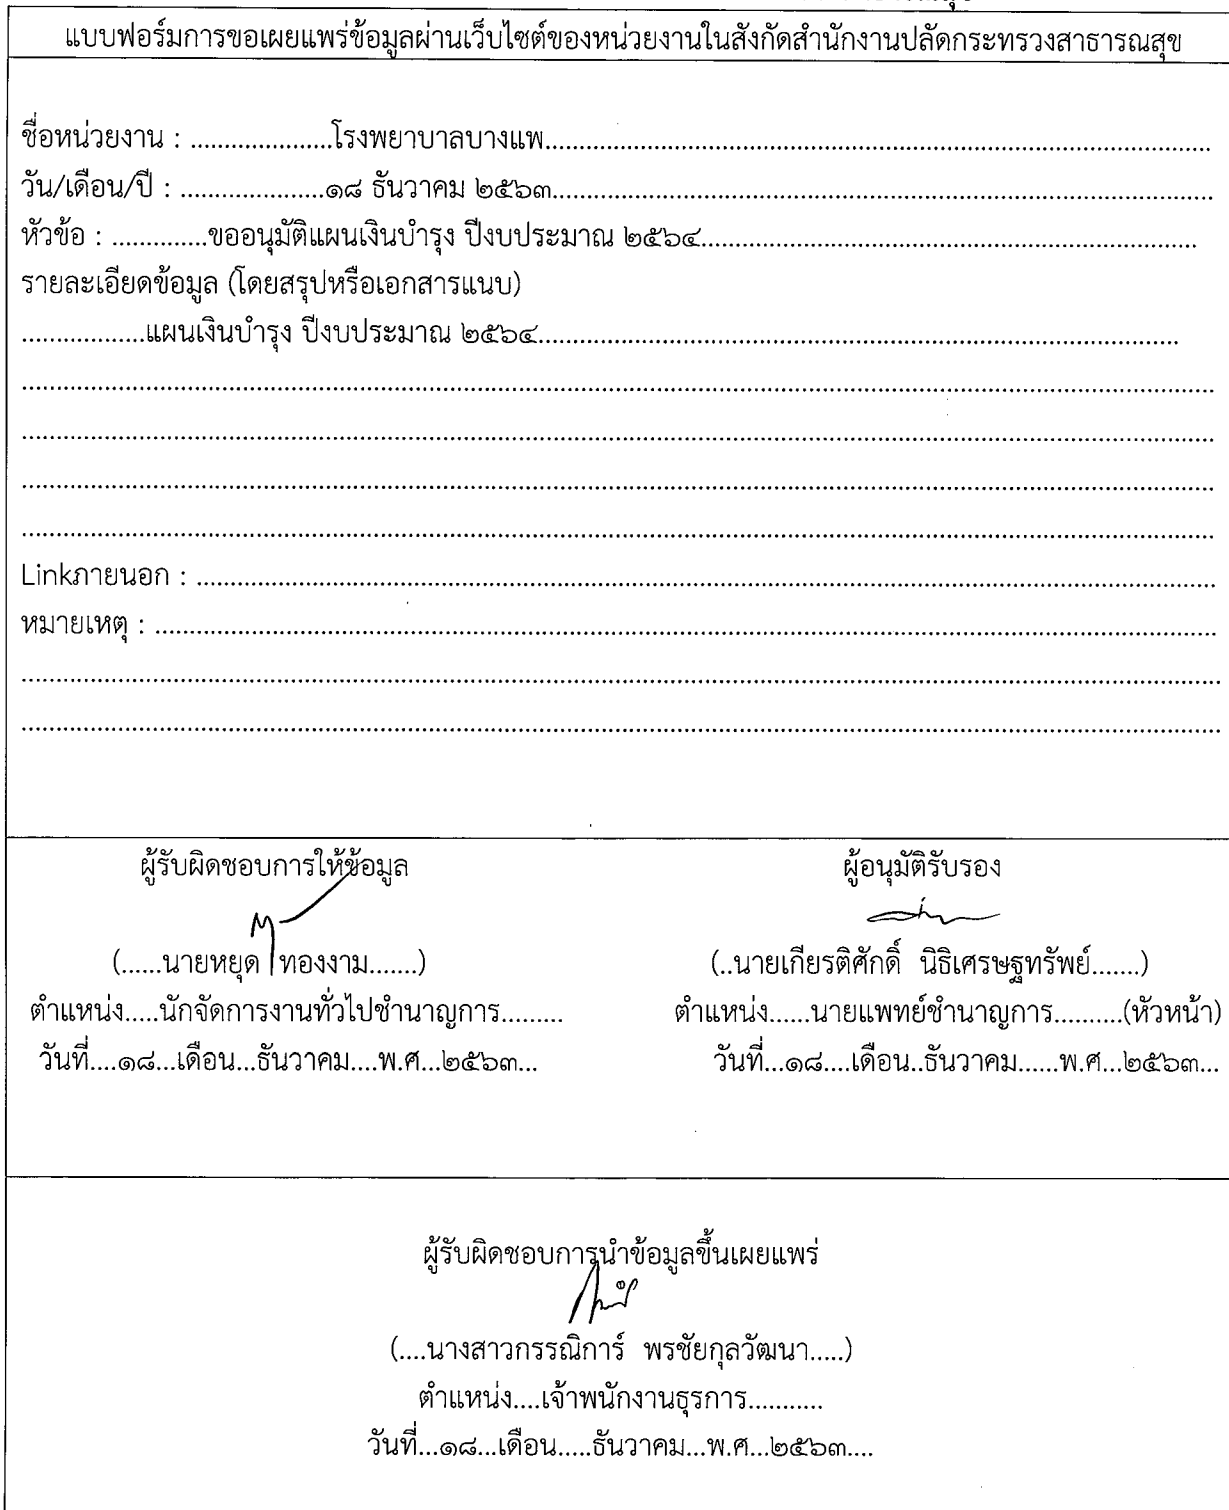 แบบฟอร์มการขอเผยแพร่ข้อมูลผ่านเว็บไซต์ของหน่วยงานในสังกัดสำนักงานปลัดกระทรวงสาธารณสุข
ชื่อหน่วยงาน : .....................โรงพยาบาลบางแพ....................................................................................................
วัน/เดือน/ปี : .....................๑๘ ธันวาคม ๒๕๖๓....................................................................................................
หัวข้อ : ..............ขออนุมัติแผนเงินบำรุง ปีงบประมาณ ๒๕๖๔..........................................................................
รายละเอียดข้อมูล (โดยสรุปหรือเอกสารแนบ)
..................แผนเงินบำรุง ปีงบประมาณ ๒๕๖๔................................................................................................
................................................................................................................................................................
................................................................................................................................................................
................................................................................................................................................................
................................................................................................................................................................
Linkภายนอก : ..........................................................................................................................................
หมายเหตุ : ................................................................................................................................................
................................................................................................................................................................
................................................................................................................................................................
ผู้รับผิดชอบการให้ข้อมูล
(......นายหยุด ทองงาม.......)
ตำแหน่ง.....นักจัดการงานทั่วไปชำนาญการ.........
วันที่....๑๘...เดือน...ธันวาคม....พ.ศ...๒๕๖๓...
ผู้อนุมัติรับรอง
(..นายเกียรติศักดิ์ นิธิเศรษฐทรัพย์.......)
ตำแหน่ง......นายแพทย์ชำนาญการ..........(หัวหน้า)
วันที่...๑๘....เดือน..ธันวาคม......พ.ศ...๒๕๖๓...
ผู้รับผิดชอบการนำข้อมูลขึ้นเผยแพร่
(....นางสาวกรรณิการ์ พรชัยกุลวัฒนา.....)
ตำแหน่ง....เจ้าพนักงานธุรการ...........
วันที่...๑๘...เดือน.....ธันวาคม...พ.ศ...๒๕๖๓....